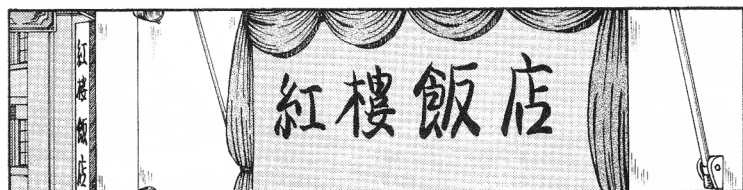 紅樓飯店
紅樓飯店